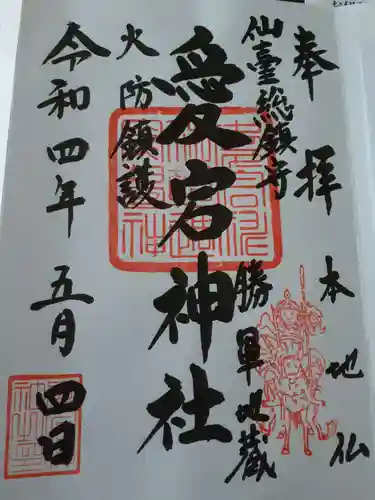 奉拝
本地仏
仙臺総鎮守
勝軍地蔵
愛宕神社
火防鎮護
令和四年
五月四日